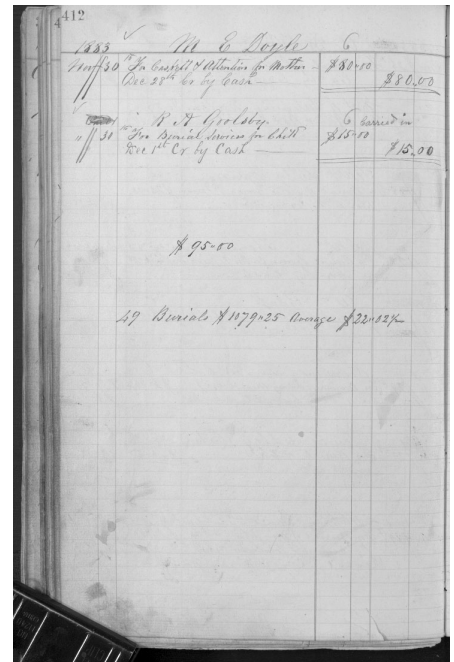 412
1883 M E Doyle 6
Nov 30 To Casket & Attention for Mother $80-00
Dec 28th Cr by Cash $80.00
R A Goolsby 6 Carried in
" 30 To For Burial Services for Child $15-00
Dec 1st Cr by Cash $15.00
$95-00
49 Burials $1079-25 Average $22-02½